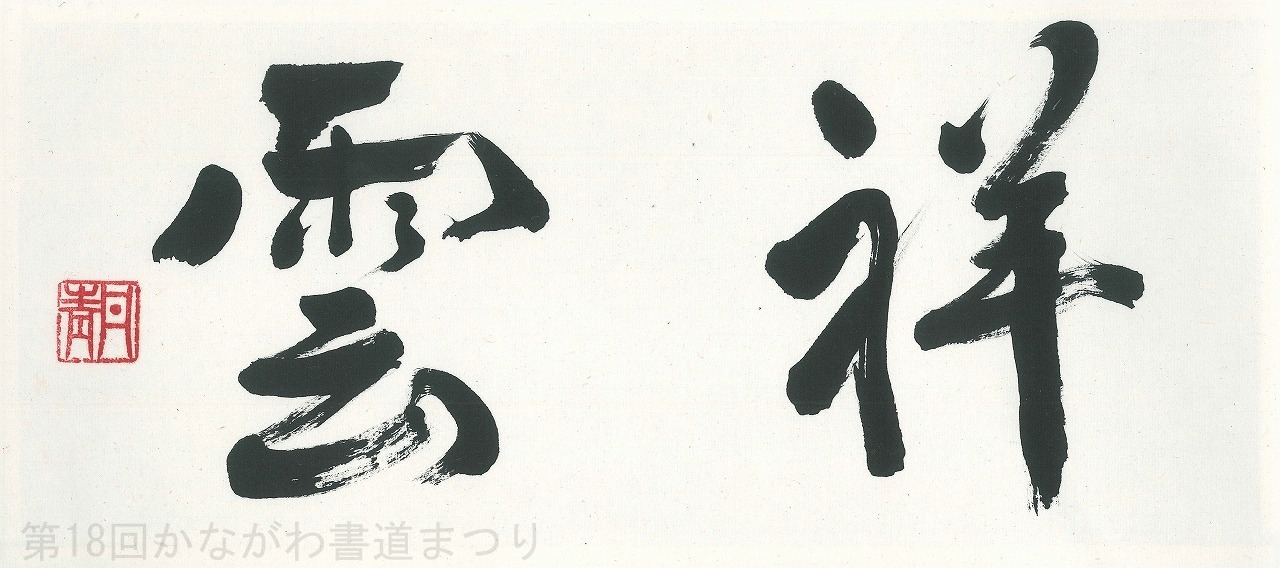 祥雲
第18回かながわ書道まつり